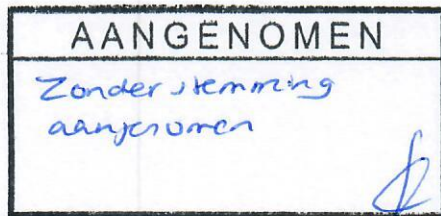 AANGENOMEN
Zonder stemming
aangenomen